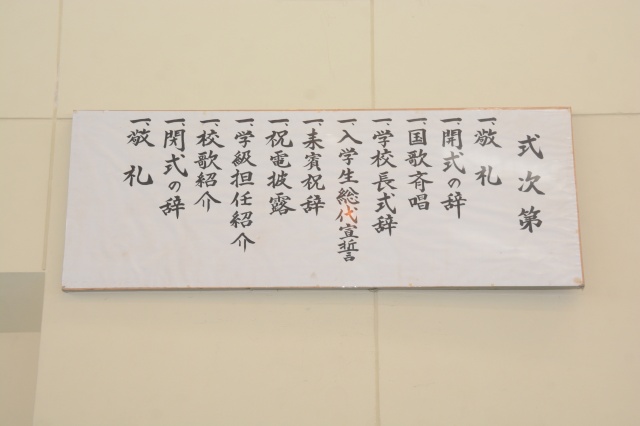 式次第
一、敬礼
一、開式の辞
一、国歌斉唱
一、学校長式辞
一、入学生総代宣誓
一、来賓祝辞
一、祝電披露
一、学級担任紹介
一、校歌紹介
一、閉式の辞
一、敬礼